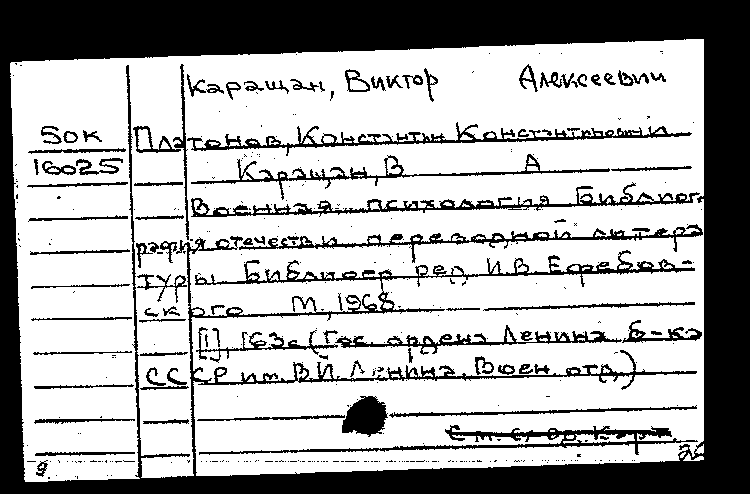 Каращан, Виктор Алексеевич
50к Платонов, Константин Константинович
16025 Каращан, В А
Военная психология Библиог-
рафия отечеств. и переводной литера
туры Библиогр ред И.В. Ефебов-
ского М, 1968
[1], 163с (Гос. ордена Ленина б-ка
СССР им. В.И. Ленина, Воен. отд.)
См. сл од. карт.
9